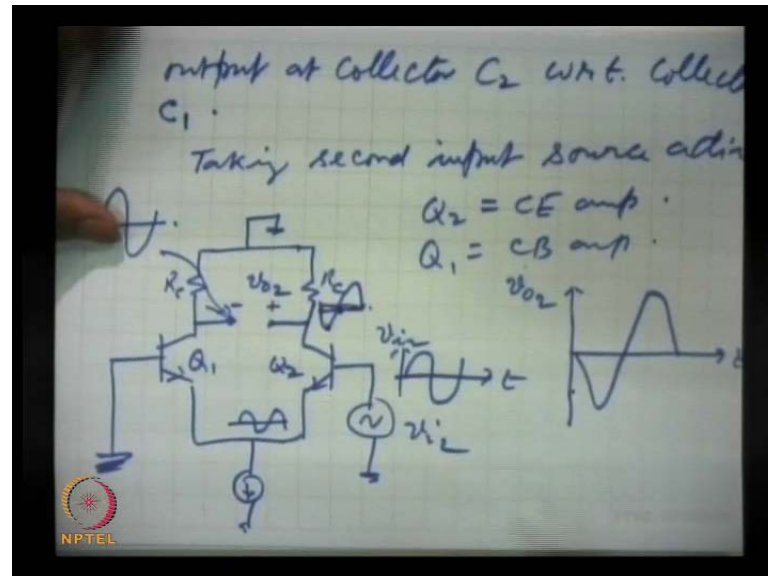 output at collector C2 w.r.t. Collec
C1.
Taking second input source actin
Q2 = CE amp.
Q1 = CB amp.
Rc
vo2
Rc
- +
vo2
vi2
Q1
Q2
t
t
vi2
NPTEL